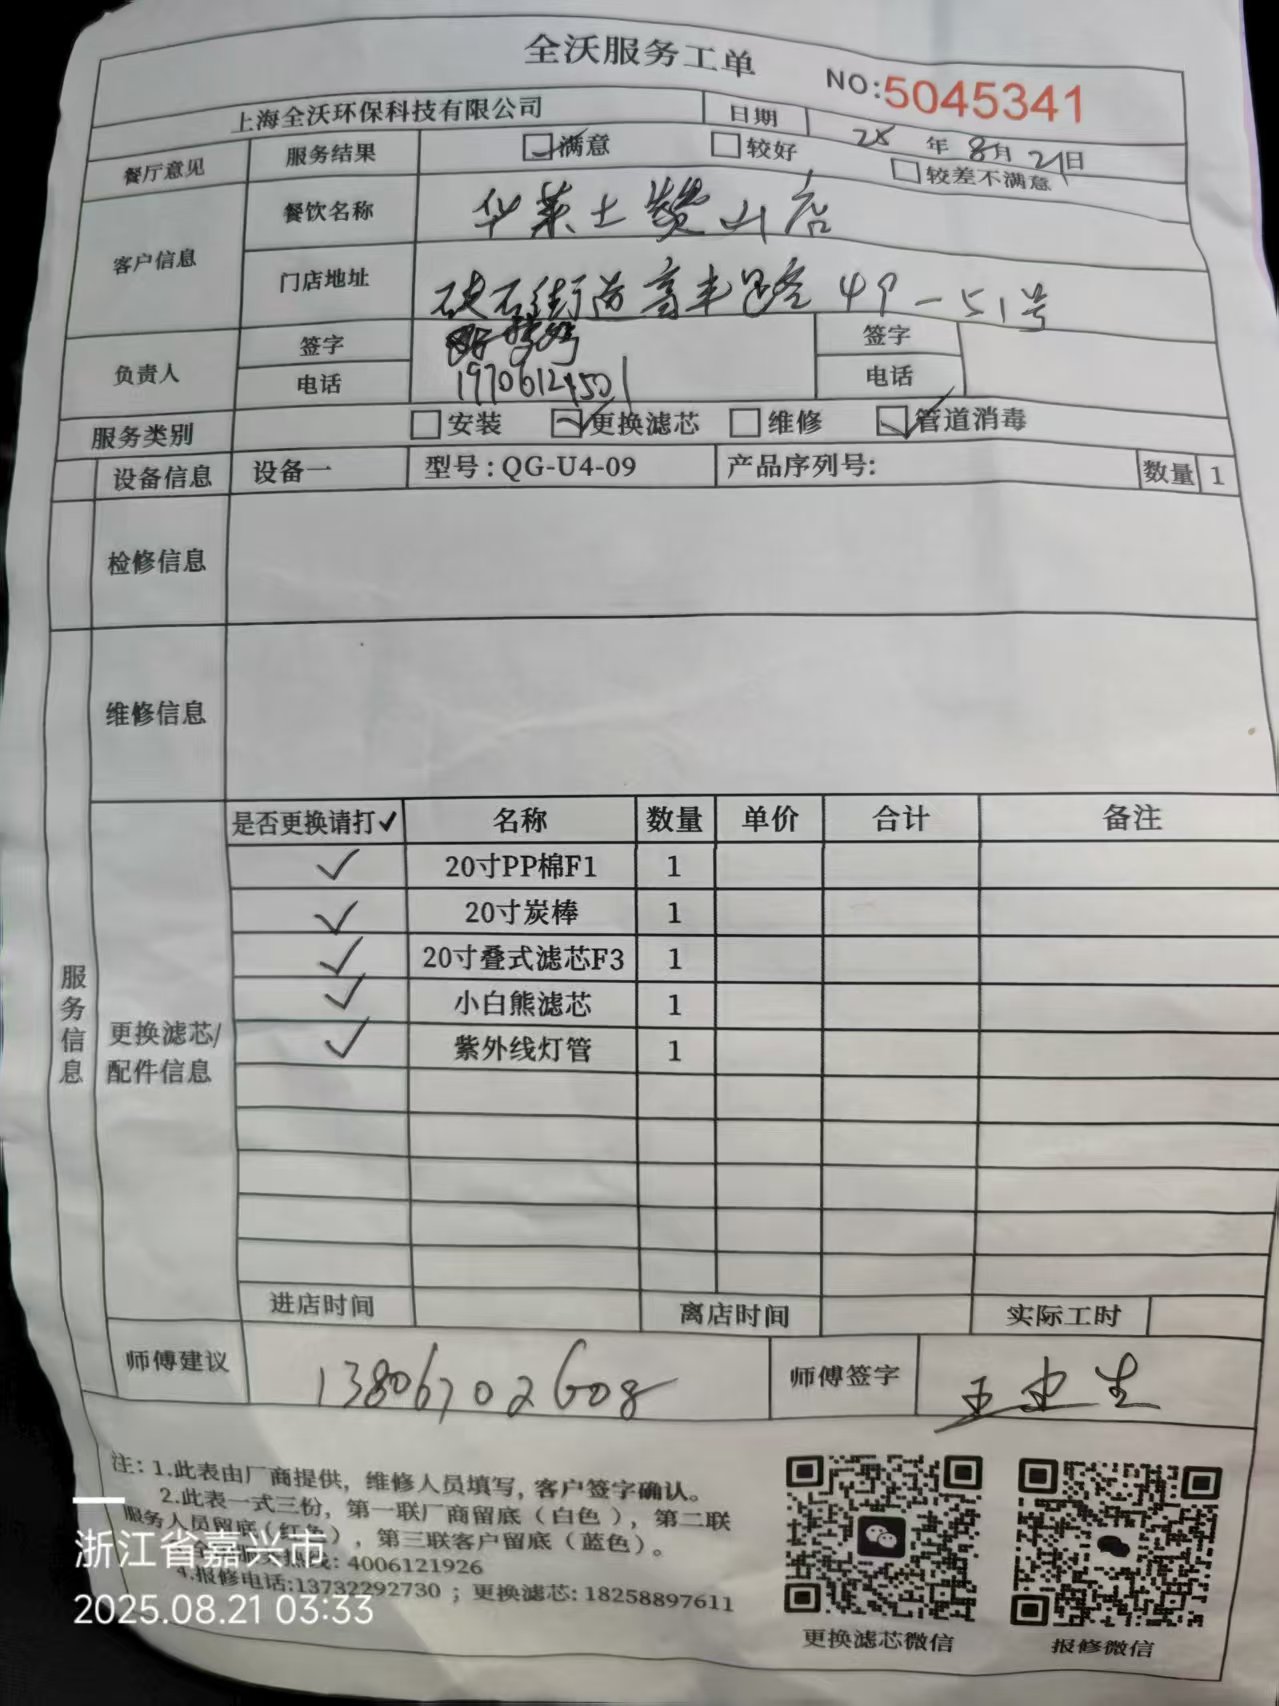 全沃服务工单
NO:5045341
上海全沃环保科技有限公司 日期 25年8月21日
餐厅意见 服务结果 满意 较好 较差不满意
客户信息 餐饮名称 华莱士 山店
门店地址 硖石街道 路49-51号
负责人 签字 签字
电话 19706124501 电话
服务类别 安装 更换滤芯 维修 管道消毒
设备信息 设备一 型号:QG-U4-09 产品序列号: 数量 1
检修信息
维修信息
服务信息
更换滤芯/
配件信息
是否更换请打✓ 名称 数量 单价 合计 备注
✓ 20寸PP棉F1 1
✓ 20寸炭棒 1
✓ 20寸叠式滤芯F3 1
✓ 小白熊滤芯 1
✓ 紫外线灯管 1
进店时间 离店时间 实际工时
师傅建议 13806702608 师傅签字 王 生
注：1.此表由厂商提供，维修人员填写，客户签字确认。
2.此表一式三份，第一联厂商留底（白色），第二联
服务人员留底（红色），第三联客户留底（蓝色）。
热线: 4006121926
4.报修电话:13732292730 ；更换滤芯: 18258897611
更换滤芯微信 报修微信
浙江省嘉兴市
2025.08.21 03:33